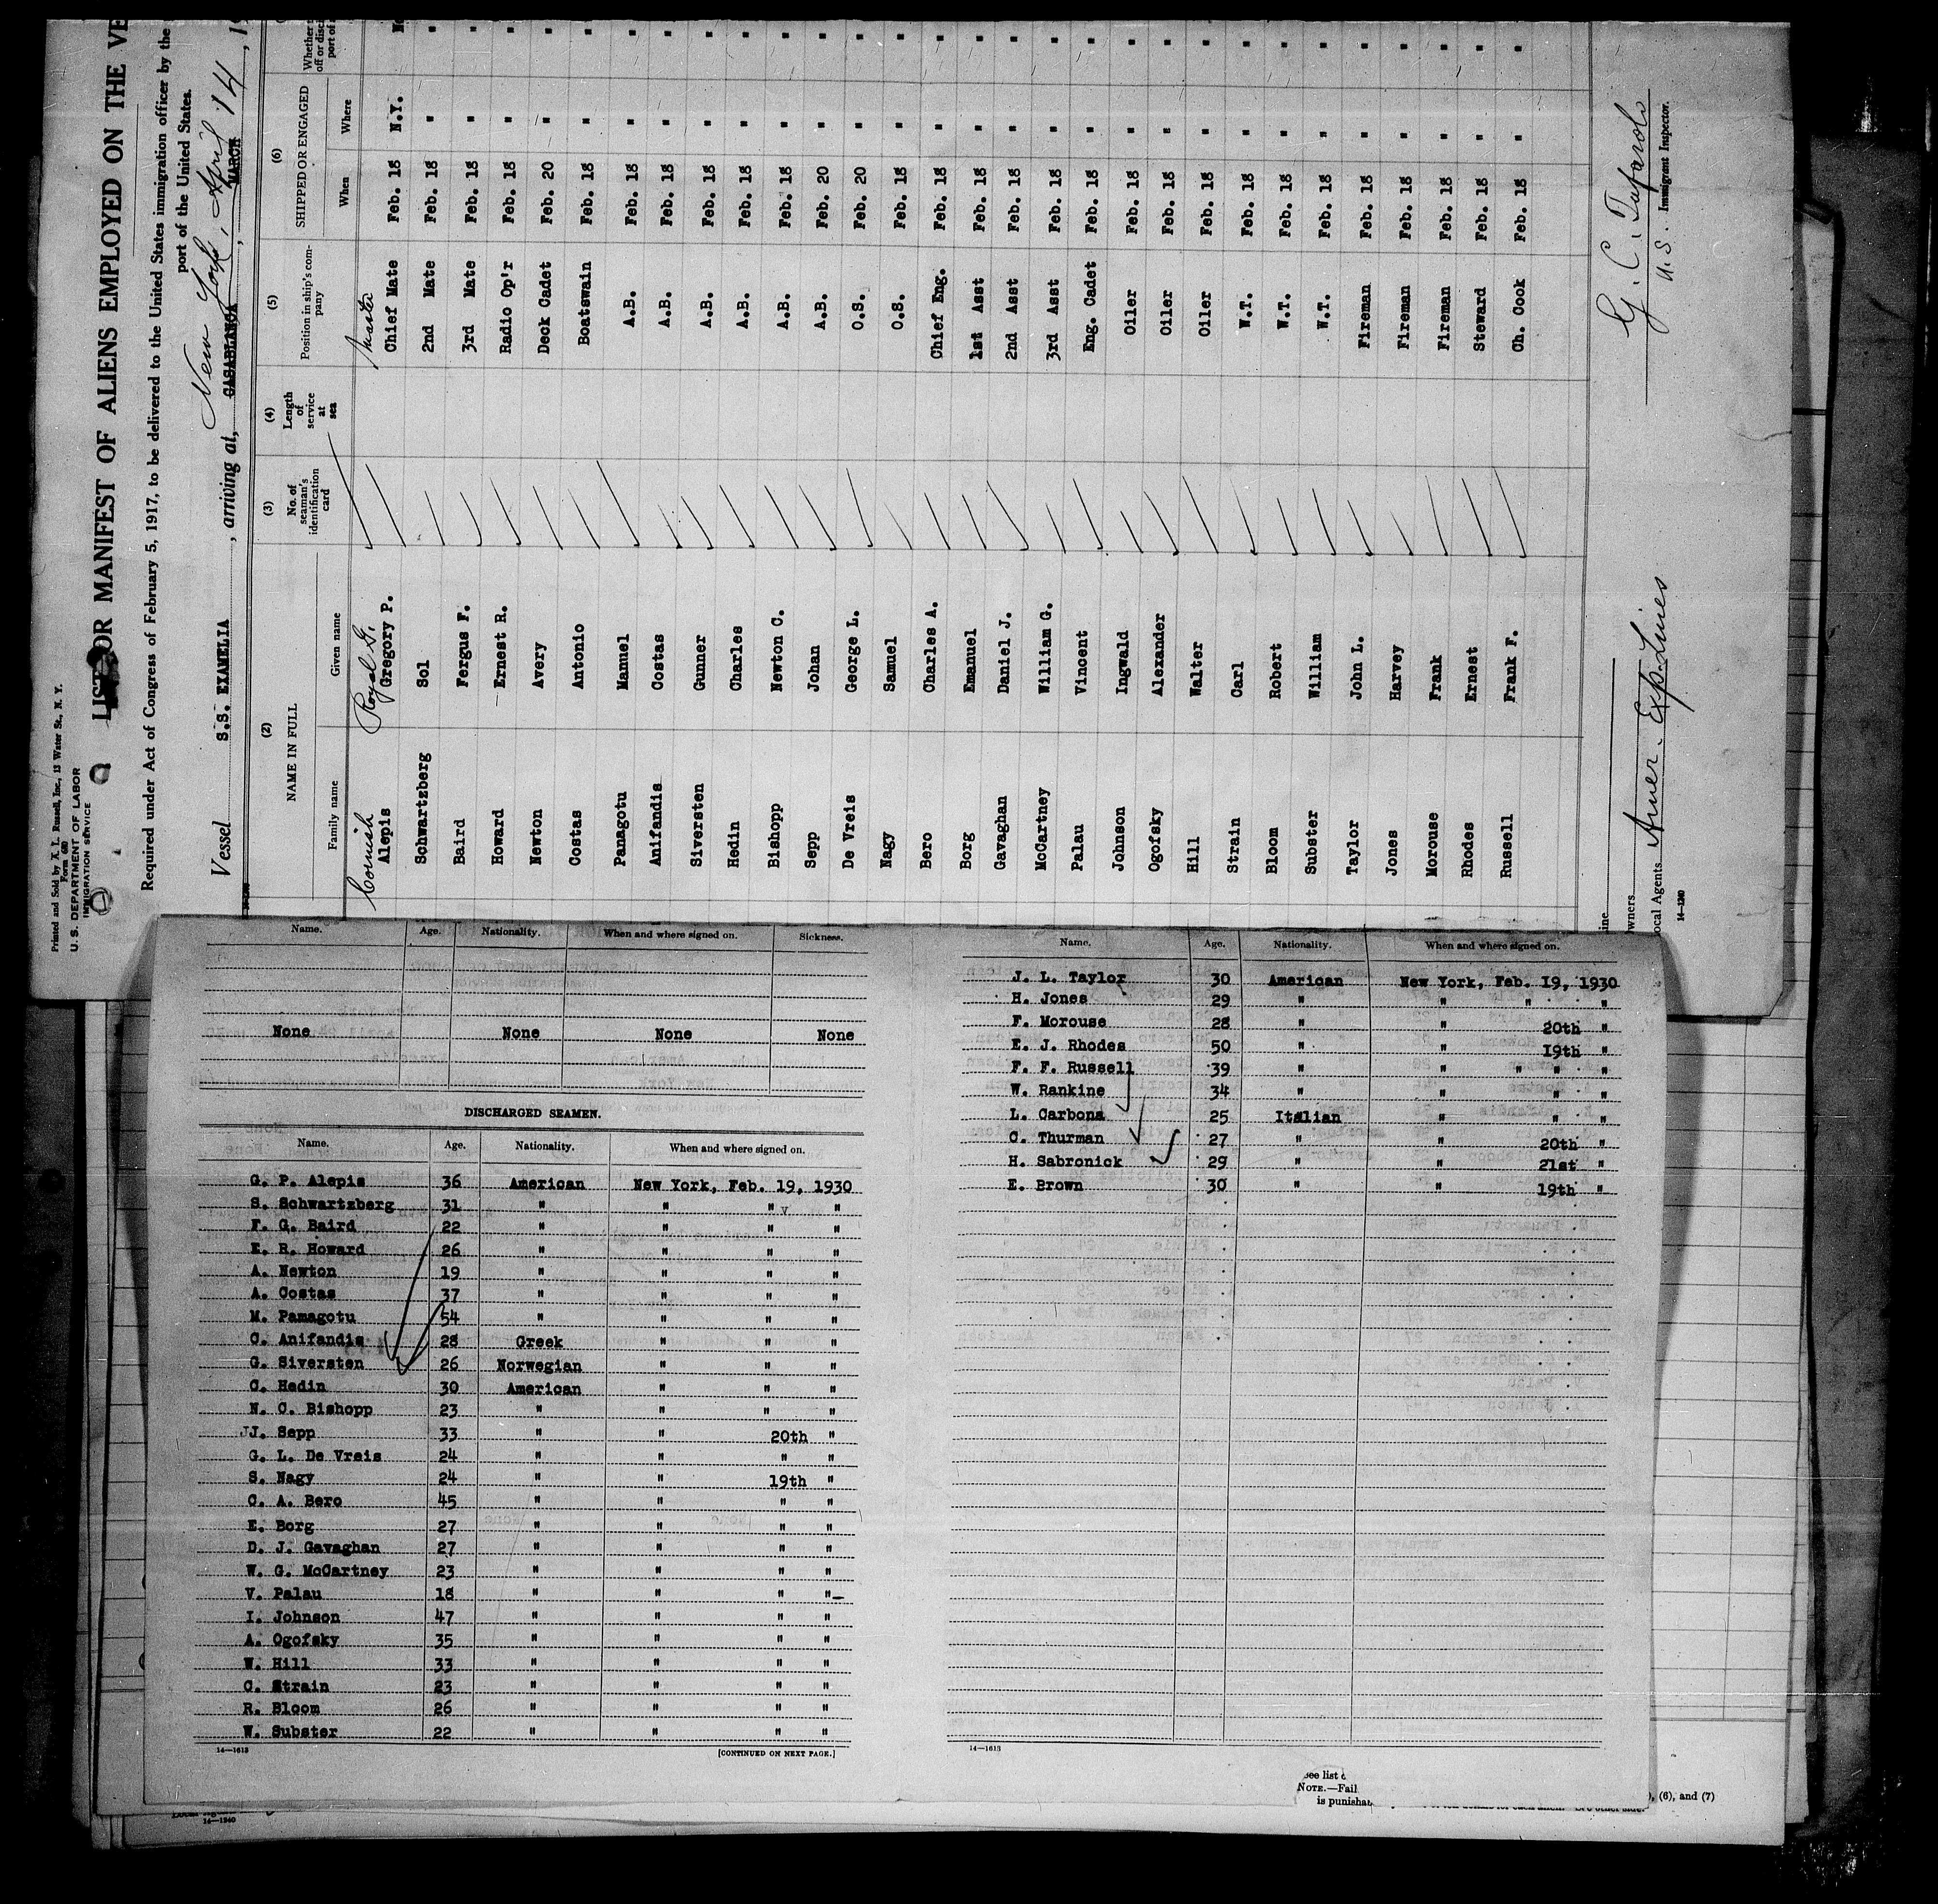 Printed and Sold by A. L. Russell, Inc., 12 Water St., N. Y.
Form 680
U. S. DEPARTMENT OF LABOR
IMMIGRATION SERVICE
LIST OR MANIFEST OF ALIENS EMPLOYED ON THE VE
Required under Act of Congress of February 5, 1917, to be delivered to the United States immigration officer by the
port of the United States.
Vessel S.S. EXAMELIA, arriving at, CASABLANCA New York, MARCH April 14, 19
(2) (3) (4) (5) (6)
NAME IN FULL No. of seaman's identification card Length of service at sea Position in ship's company SHIPPED OR ENGAGED
Family name Given name When Where
Cornish Royal G. Master
Alepis Gregory P. Chief Mate Feb. 18 N.Y.
Schwartzberg Sol 2nd Mate Feb. 18 "
Baird Fergus F. 3rd Mate Feb. 18 "
Howard Ernest R. Radio Op'r Feb. 18 "
Newton Avery Deck Cadet Feb. 20 "
Costas Antonio Boatswain Feb. 18 "
Panagotu Manuel A.B. Feb. 18 "
Anifandis Costas A.B. Feb. 18 "
Siversten Gunner A.B. Feb. 18 "
Hedin Charles A.B. Feb. 18 "
Bishopp Newton C. A.B. Feb. 18 "
Sepp Johan A.B. Feb. 20 "
De Vreis George L. O.S. Feb. 20 "
Nagy Samuel O.S. Feb. 18 "
Bero Charles A. Chief Eng. Feb. 18 "
Borg Emanuel 1st Asst Feb. 18 "
Gavaghan Daniel J. 2nd Asst Feb. 18 "
McCartney William G. 3rd Asst Feb. 18 "
Palau Vincent Eng. Cadet Feb. 18 "
Johnson Ingwald Oiler Feb. 18 "
Ogofsky Alexander Oiler Feb. 18 "
Hill Walter Oiler Feb. 18 "
Strain Carl W.T. Feb. 18 "
Bloom Robert W.T. Feb. 18 "
Subster William W.T. Feb. 18 "
Taylor John L. Fireman Feb. 18 "
Jones Harvey Fireman Feb. 18 "
Morouse Frank Fireman Feb. 18 "
Rhodes Ernest Steward Feb. 18 "
Russell Frank F. Ch. Cook Feb. 18 "
ine
wners
ocal Agents Amer. Exp. Lines
14—1240
U. S. Immigrant Inspector.
Name. Age. Nationality. When and where signed on. Sickness.
None None None None
DISCHARGED SEAMEN.
Name. Age. Nationality. When and where signed on.
G. P. Alepis 36 American New York, Feb. 19, 1930
S. Schwartzberg 31 " " " "
F. G. Baird 22 " " " "
E. R. Howard 26 " " " "
A. Newton 19 " " " "
A. Costas 37 " " " "
M. Pamagotu 54 " " " "
C. Anifandis 28 Greek " " "
G. Siversten 26 Norwegian " " "
C. Hedin 30 American " " "
N. C. Bishopp 23 " " " "
JJ. Sepp 33 " " 20th "
G. L. De Vreis 24 " " " "
S. Nagy 24 " " 19th "
C. A. Bero 45 " " " "
E. Borg 27 " " " "
D. J. Gavaghan 27 " " " "
W. G. McCartney 23 " " " "
V. Palau 18 " " " "
I. Johnson 47 " " " "
A. Ogofsky 35 " " " "
W. Hill 33 " " " "
C. Strain 23 " " " "
R. Bloom 26 " " " "
W. Subster 22 " " " "
14—1613 [CONTINUED ON NEXT PAGE.]
Name. Age. Nationality. When and where signed on.
J. L. Taylor 30 American New York, Feb. 19, 1930
H. Jones 29 " " " "
F. Morouse 28 " " 20th "
E. J. Rhodes 50 " " 19th "
F. F. Russell 39 " " " " "
W. Rankine 34 " " " "
L. Carbona 25 Italian " " "
C. Thurman 27 " " 20th "
H. Sabronick 29 " " 21st "
E. Brown 30 " " 19th "
14—1613
see list
NOTE.—Fail
is punishab
, (6), and (7)
14—1240